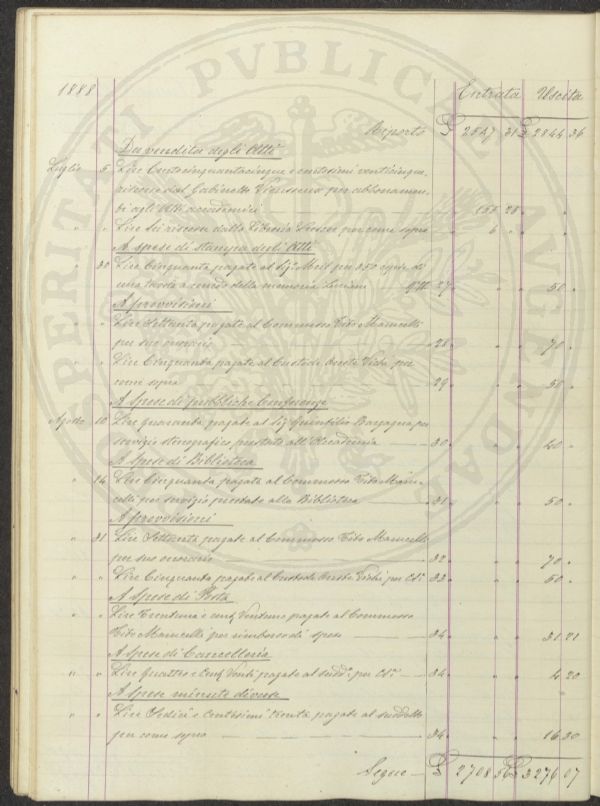 1888 Entrata Uscita
Riporto £ 2547 31 £ 2844 36
Da vendita degli Atti
Luglio 5 Lire Centocinquantacinque e centesimi venticinque
riscosse dal Gabinetto Vieusseux per abbonamen
ti agli Atti accademici 155 25 " "
" " Lire Sei riscosse dalla Libreria per come sopra 6 " " "
A spese di stampa degli Atti
" 30 Lire Cinquanta pagate al Sigr. per 250 copie di
una tavola a corredo della memoria 27 " " 50 "
A provvisioni
" " Lire Settanta pagate al Commesso Tito Marucelli
per suo onorario 28 " " 70 "
" " Lire Cinquanta pagate al Custode Oreste per
come sopra 29 " " 50 "
A Spese di pubbliche Conferenze
Agosto 10 Lire quaranta pagate al Sigr. Quintilio Bargagna per
servizio stenografico prestato all'Accademia 30 " " 40 "
A Spese di Biblioteca
" 14 Lire Cinquanta pagate al Commesso Tito Maru
celli per servizio prestato alla Biblioteca 31 " " 50 "
A provvisioni
" 31 Lire Settanta pagate al Commesso Tito Marucelli
per suo onorario 32 " " 70 "
" " Lire Cinquanta pagate al Custode Oreste per Cs. 33 " " 50 "
A Spese di Posta
" " Lire Trentuna e cent. Ventuno pagate al Commesso
Tito Marucelli per rimborso di spese 34 " " 31 21
A Spese di Cancelleria
" " Lire Quattro e Cent. Venti pagate al sudd. per Cs. 34 " " 4 20
A Spese minute diverse
" " Lire Sedici e Centesimi trenta pagate al suddetto
per come sopra 34 " " 16 30
Segue £ 2708 56 £ 3276 07